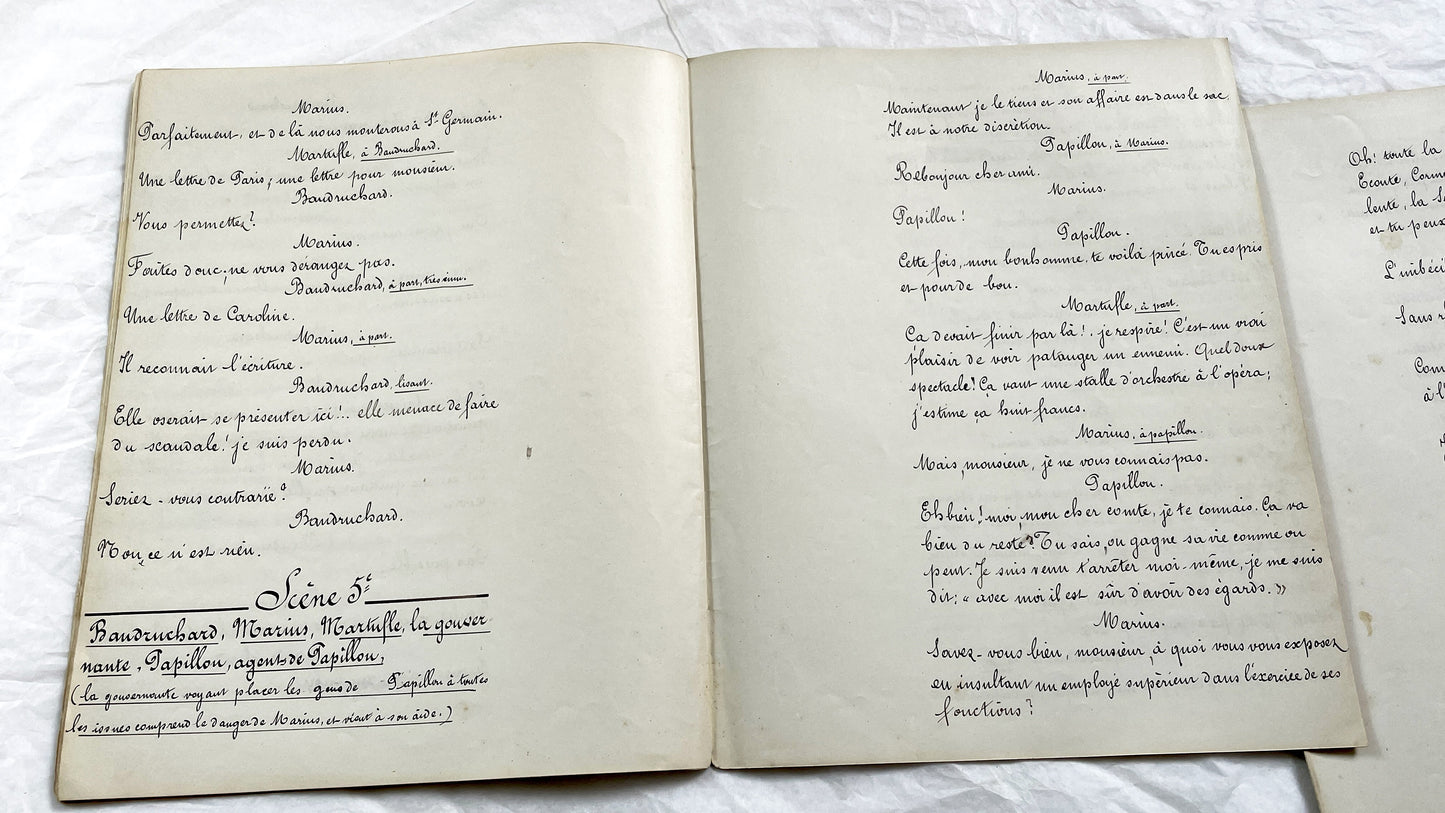 Marius.
Parfaitement, et de là nous monterons à St Germain.
Martufle, à Baudruchard.
Une lettre de Paris; une lettre pour monsieur.
Baudruchard.
Vous permettez?
Marius.
Faites donc; ne vous dérangez pas.
Baudruchard, à part, très ému.
Une lettre de Caroline.
Marius, à part.
Il reconnait l'écriture.
Baudruchard, lisant.
Elle oserait se présenter ici!.. elle menace de faire
du scandale! je suis perdu.
Marius.
Seriez-vous contrarié?
Baudruchard.
Non, ce n'est rien.
Scène 5e
Baudruchard, Marius, Martufle, la gouver
nante, Papillon, agent de Papillon,
(la gouvernante voyant placer les gens de Papillon à toutes
les issues comprend le danger de Marius, et vient à son aide.)
Marius, à part.
Maintenant je le tiens et son affaire est dans le sac,
Il est à notre discrétion.
Papillon, à Marius.
Rebonjour cher ami.
Marius.
Papillon!
Papillon.
Cette fois, mon bonhomme, te voilà pincé. Tu es pris
et pour de bon.
Martufle, à part.
Ça devait finir par là!. je respire! C'est un vrai
plaisir de voir patauger un ennemi. Quel doux
spectacle! Ça vaut une stalle d'orchestre à l'opéra;
j'estime ça huit francs.
Marius, à papillon.
Mais, monsieur, je ne vous connais pas.
Papillon.
Eh bien! moi, mon cher comte, je te connais. Ça va
bien du reste? Tu sais, on gagne sa vie comme on
peut. Je suis venu t'arrêter moi-même, je me suis
dit; « avec moi il est sûr d'avoir des égards. »
Marius.
Savez-vous bien, monsieur, à quoi vous vous exposez
en insultant un employé supérieur dans l'exercice de ses
fonctions?
Oh! toute la
Ecoute,
la
et tu peux
Sans
à l'